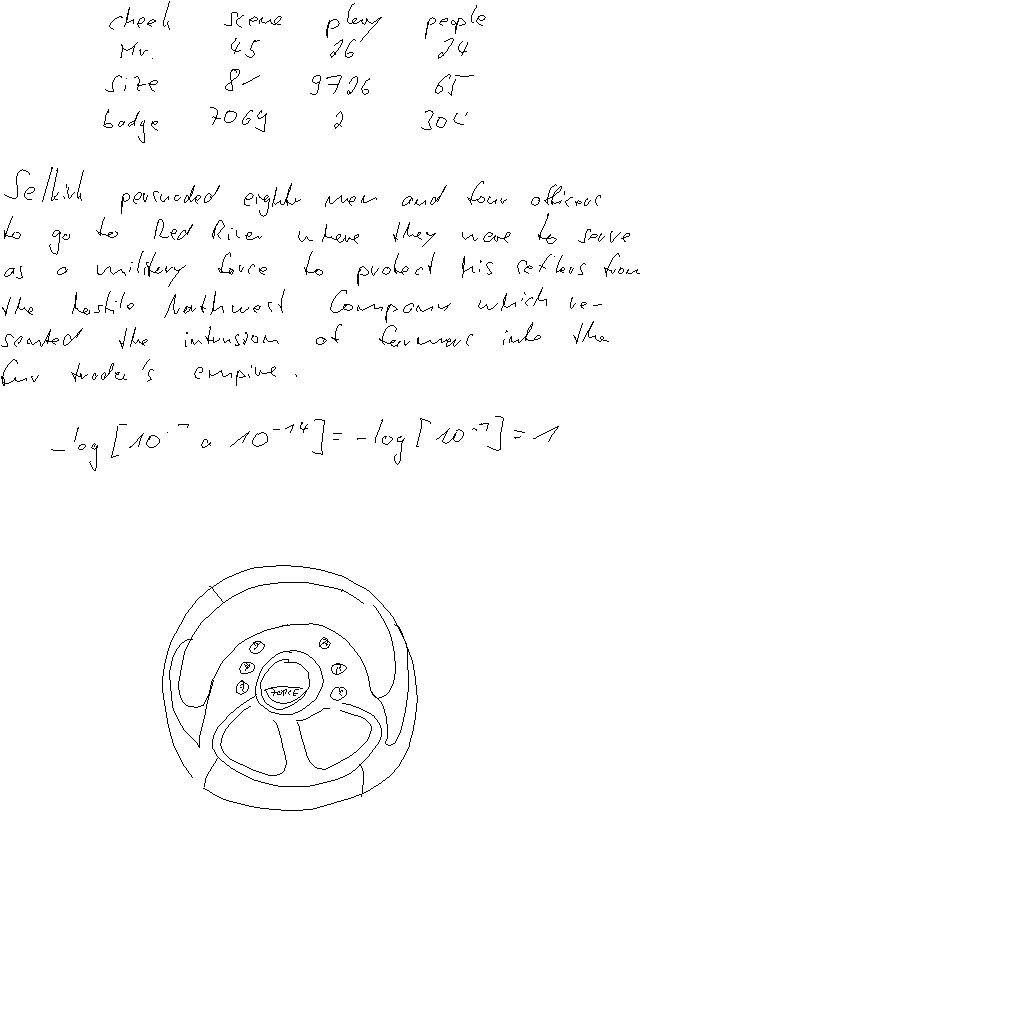 cheek scene play people
Mr. 45 26 24
size 8- 9726 65
badge 7069 2 304
Selkirk persuaded eighty men and four officers
to go to Red River where they were to serve
as a military force to protect his settlers from
the hostile Northwest Company which re-
sented the intrusion of farmers into the
fur trader's empire.
-log [10⁻⁷ a 10⁻¹⁴] = -log [10⁻⁷] = 1
FORCE